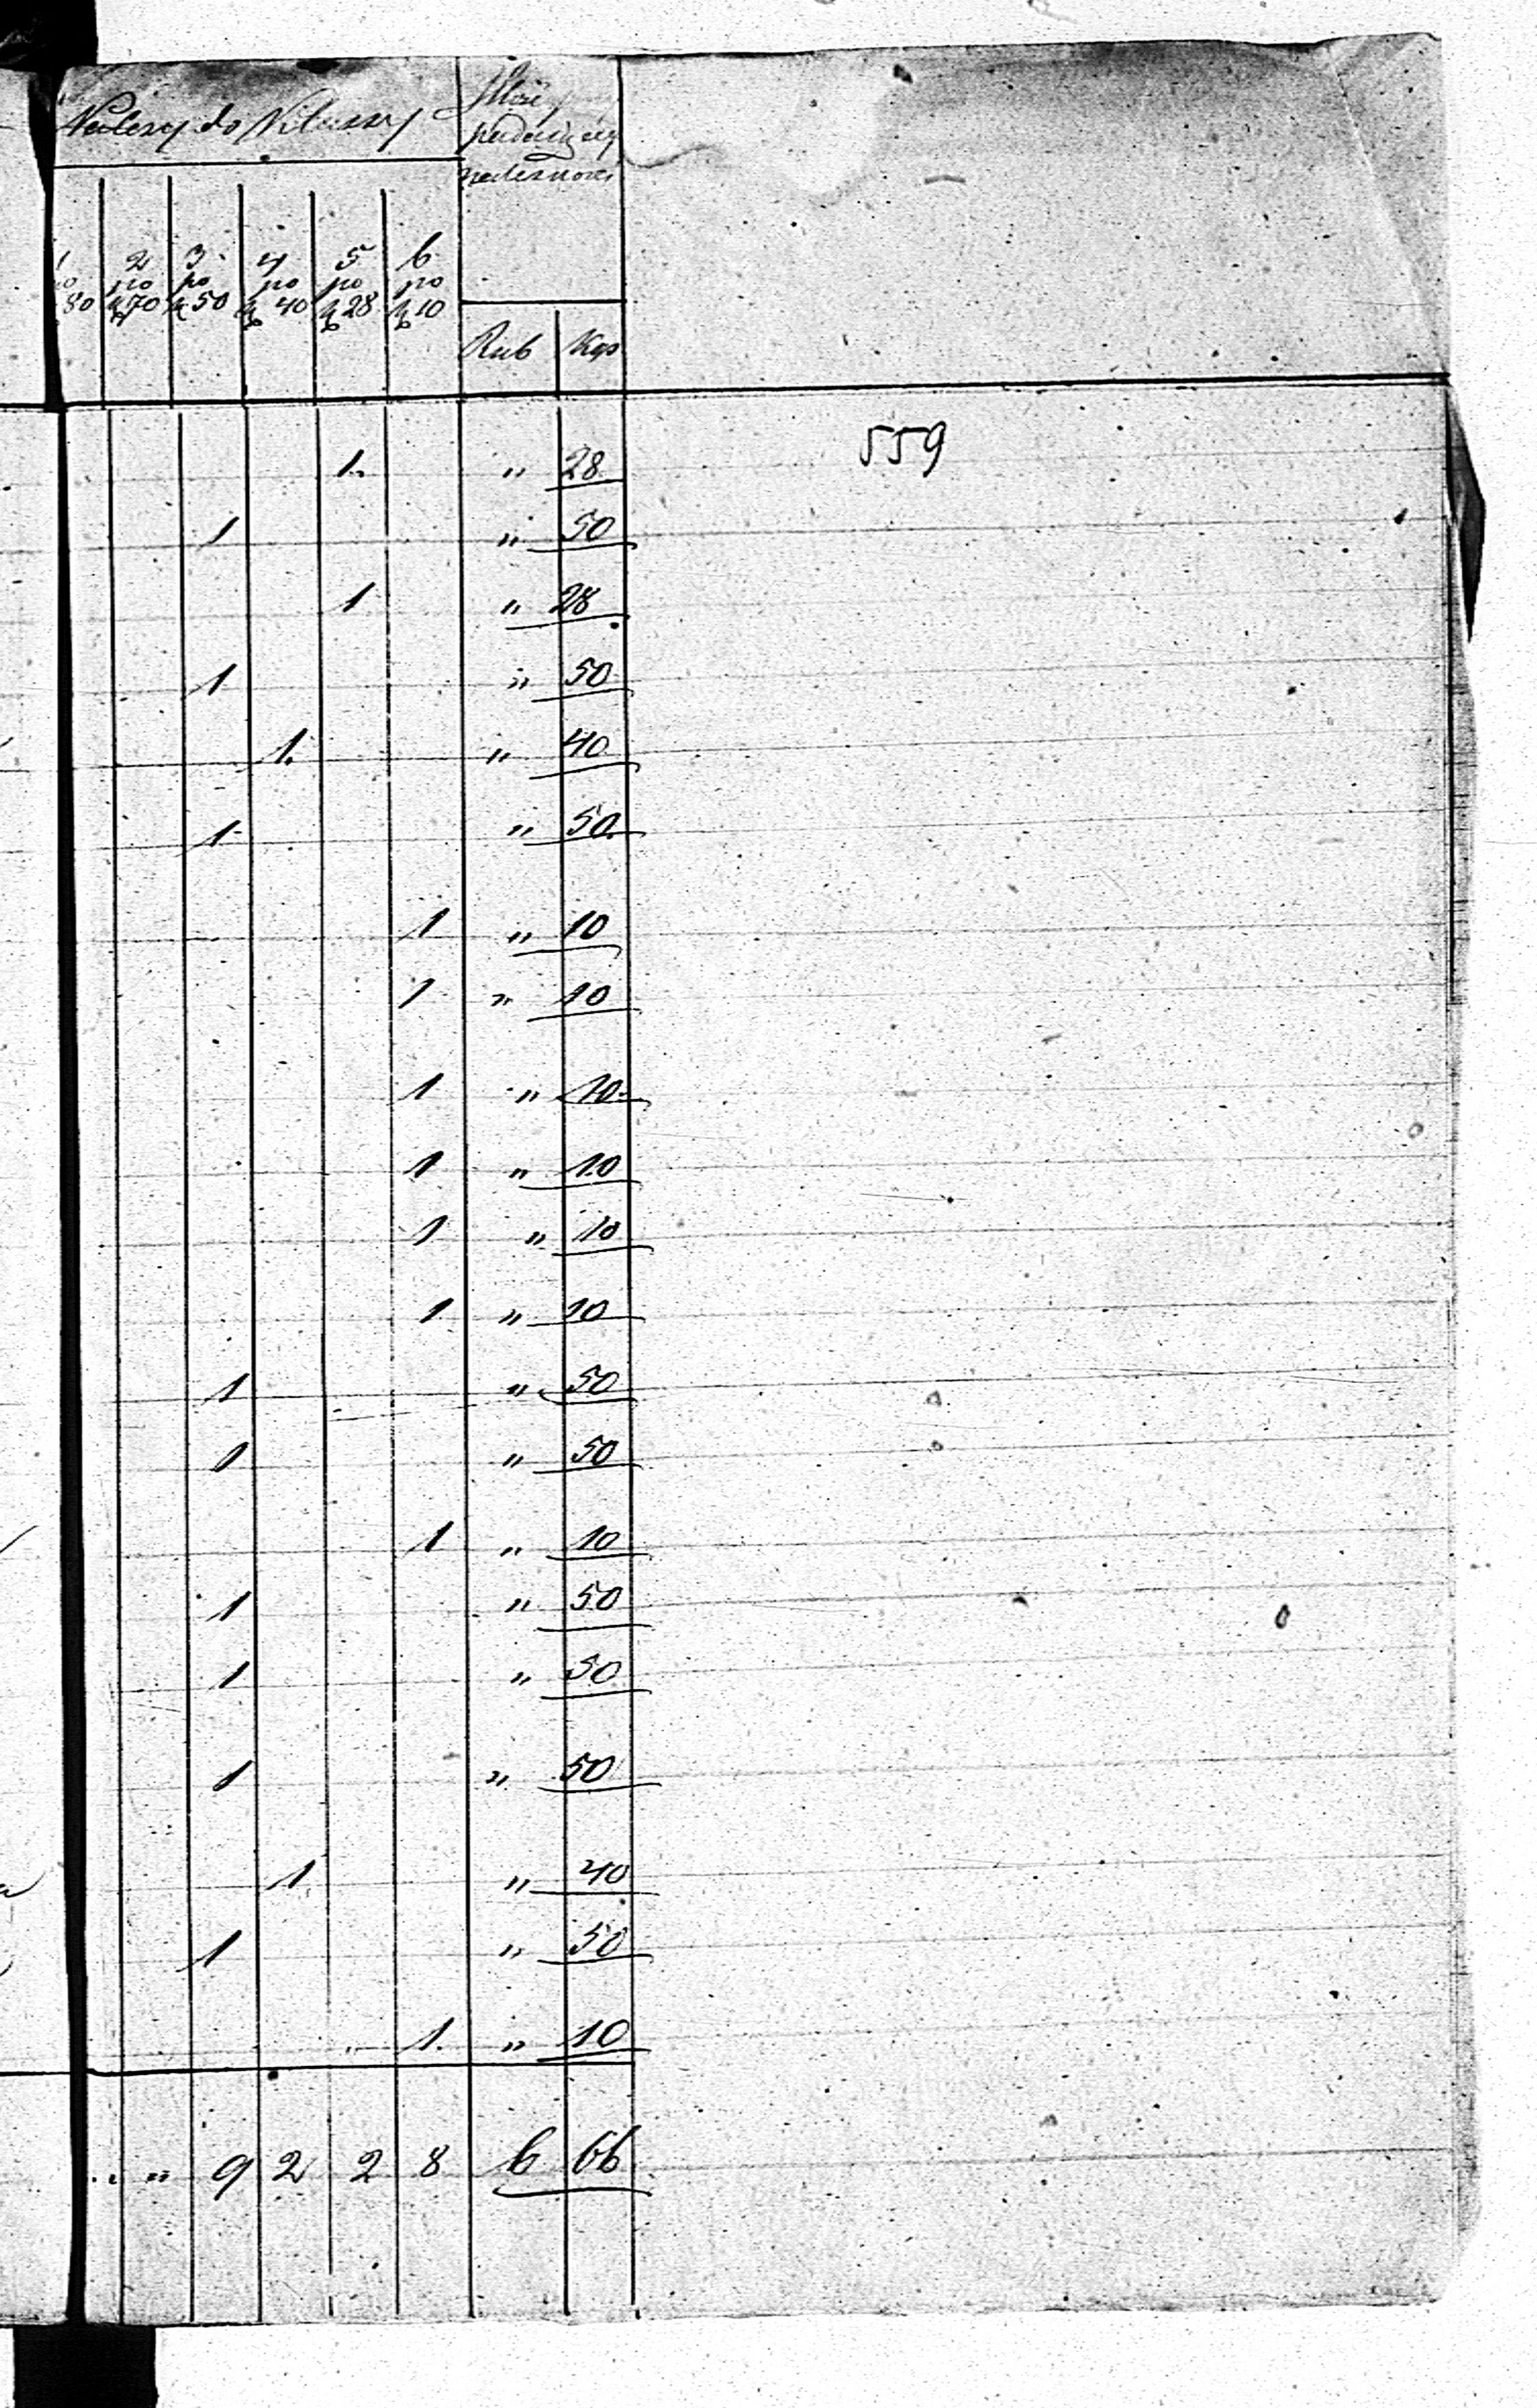 Należy do Klassy
Ilość
należności
1 2 3 4 5 6
po po po po po po
80 k 70 k 50 k 40 k 28 k 10
Rub Kop
559
1. " 28
1 " 50
1 " 28
1 " 50
1. " 40
1 " 50
1 " 10
1 " 10
1 " 10
1 " 10
1 " 10
1 " 10
1 " 50
1 " 50
1 " 10
1 " 50
1 " 50
1 " 50
1 " 40
1 " 50
1. " 10
" " 9 2 2 8 6 66